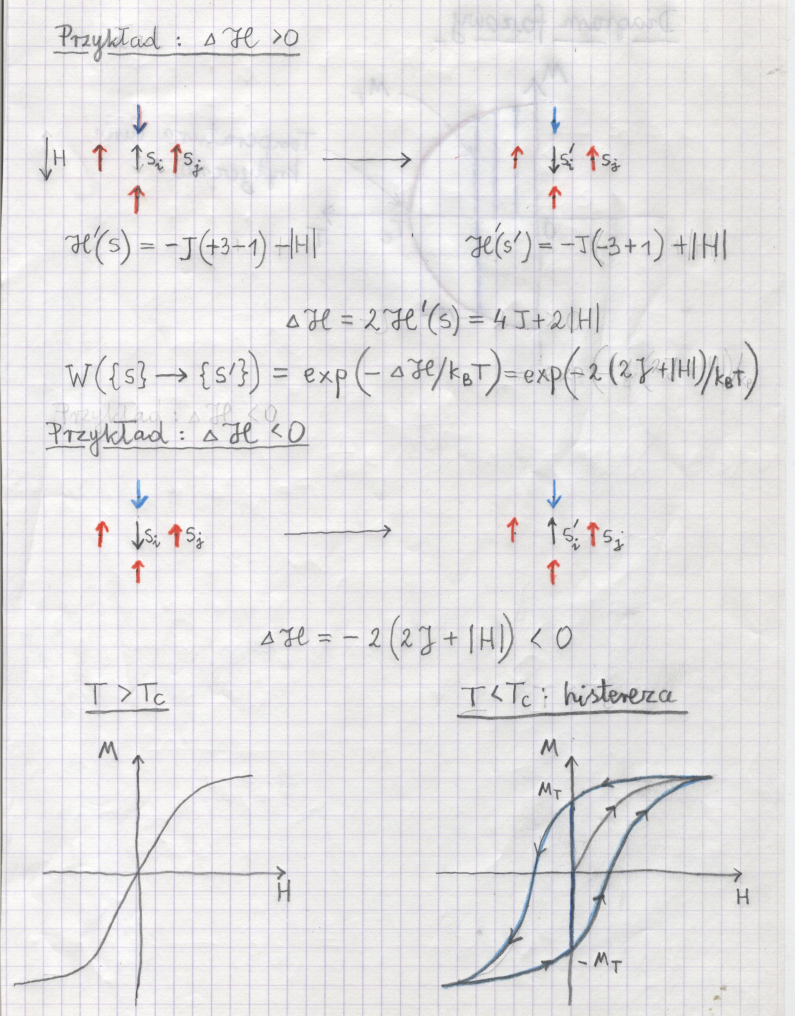 Przykład : Δ ℋ > 0
↓H ↑ ↑ Sᵢ ↑ Sⱼ → ↑ ↓ Sᵢ′ ↑ Sⱼ
ℋ′(s) = -J(+3-1) -|H|
ℋ′(s′) = -J(-3+1) +|H|
Δℋ = 2ℋ′(s) = 4J+2|H|
W({s} → {s′}) = exp(-Δℋ/k_BT) = exp(-2(2J+|H|)/k_BT)
Przykład : Δ ℋ < 0
↑ ↓ Sᵢ ↑ Sⱼ → ↑ ↑ Sᵢ′ ↑ Sⱼ
Δℋ = -2(2J + |H|) < 0
T > T_C
T < T_C : histereza
M
H
M
M_T
H
-M_T